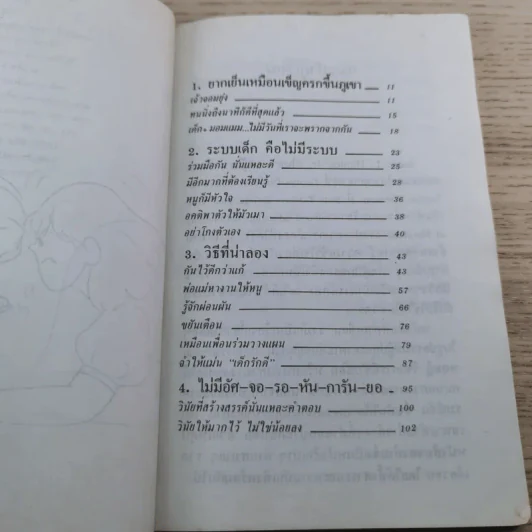 1. ยากเย็นเหมือนเข็ญครกขึ้นภูเขา 11
เจ้าจอมยุ่ง 11
ทนนิ่งถึงนาทีก็ดีที่สุดแล้ว 15
เด็ก+มอมแมม...ไม่มีวันที่เราจะพรากจากกัน 18
2. ระบบเด็ก คือไม่มีระบบ 23
ร่วมมือกัน นั่นแหละดี 25
มีอีกมากที่ต้องเรียนรู้ 28
หนูก็มีหัวใจ 36
อคติพาตัวให้มัวเมา 38
อย่าโกงตัวเอง 40
3. วิธีที่น่าลอง 43
กันไว้ดีกว่าแก้ 43
พ่อแม่หางานให้หนู 57
รู้จักผ่อนผัน 66
ขยันเตือน 76
เหมือนเพื่อนร่วมวางแผน 79
จำให้แม่น "เด็กรักดี" 87
4. ไม่มีอัศ-จอ-รอ-หัน-การัน-ยอ 95
วินัยที่สร้างสรรค์นั่นแหละคำตอบ 100
วินัยให้มากไว้ ไม่ใช่น้อยลง 102